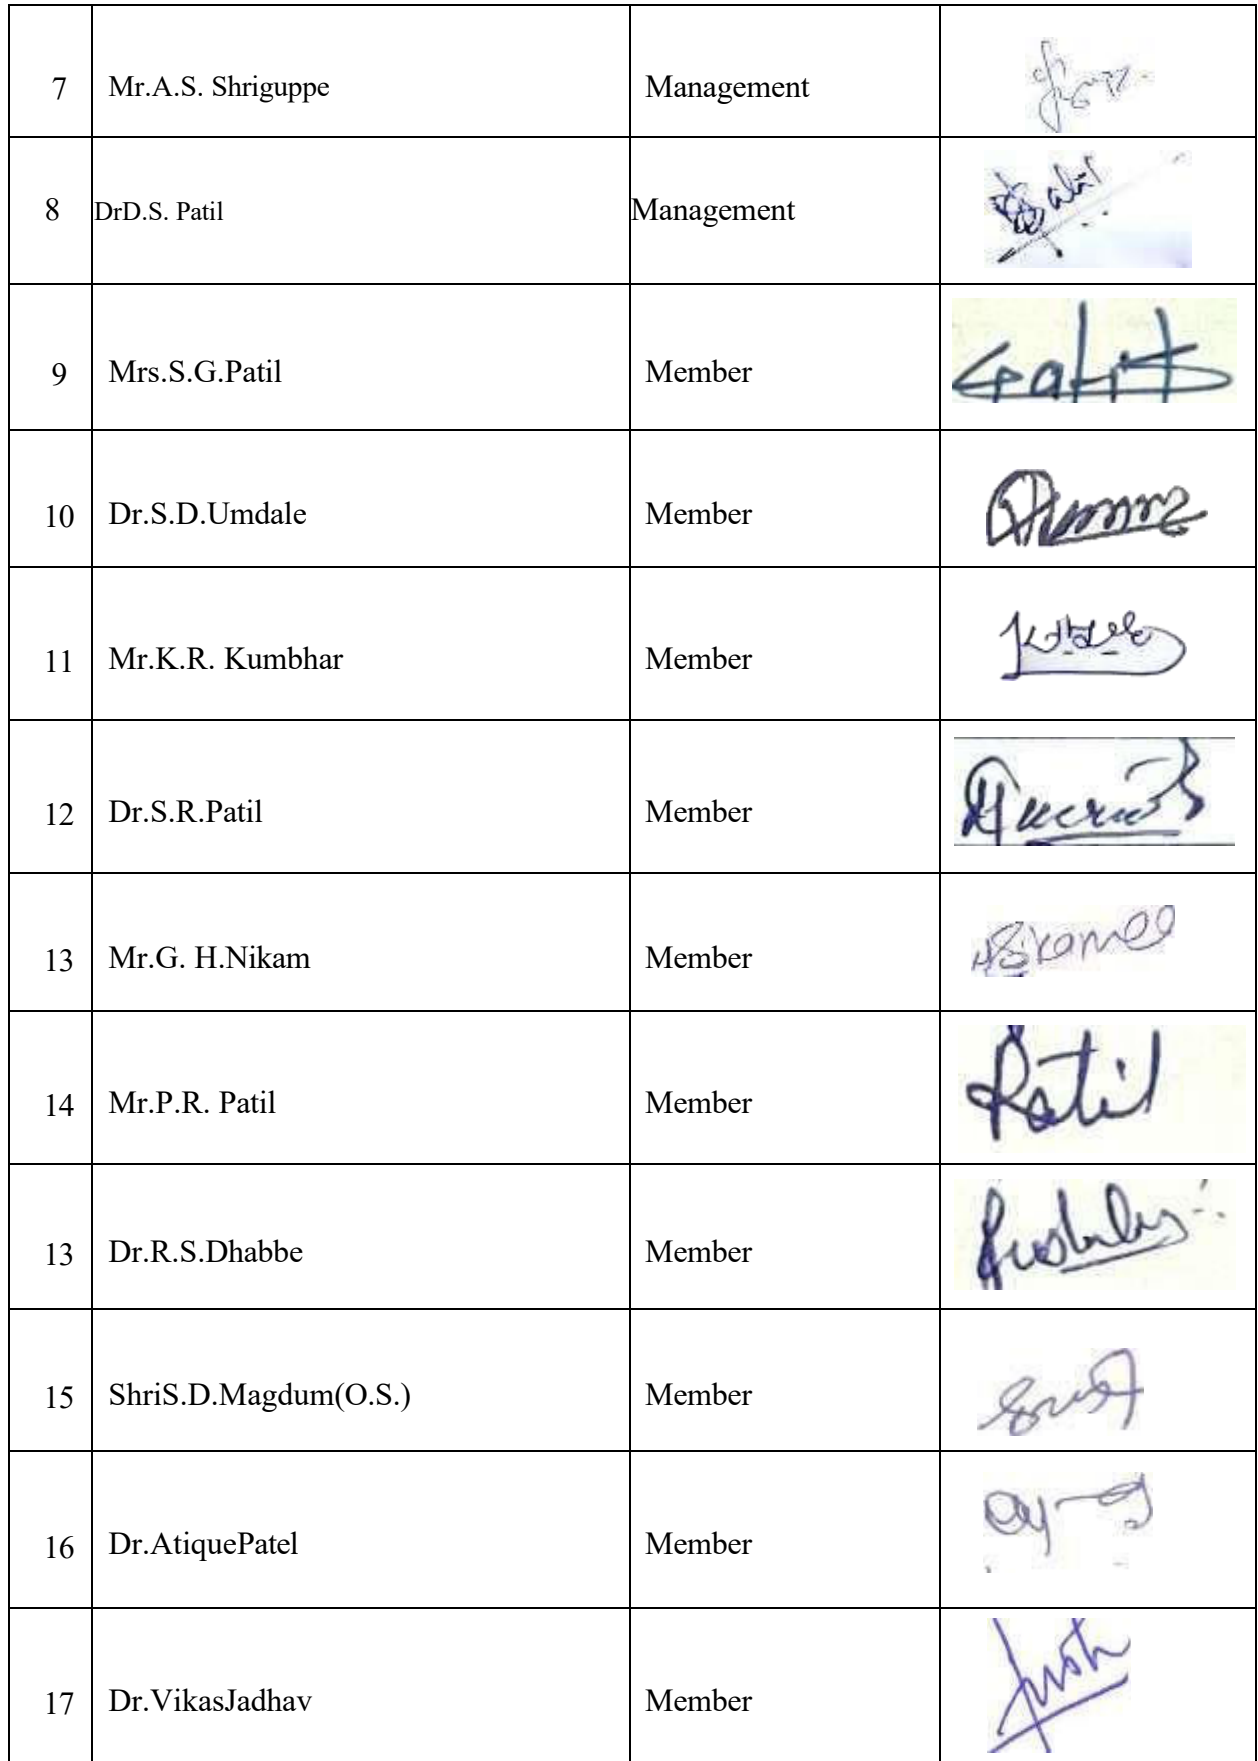 7 Mr.A.S. Shriguppe Management
8 DrD.S. Patil Management
9 Mrs.S.G.Patil Member
10 Dr.S.D.Umdale Member
11 Mr.K.R. Kumbhar Member
12 Dr.S.R.Patil Member
13 Mr.G. H.Nikam Member
14 Mr.P.R. Patil Member Patil
13 Dr.R.S.Dhabbe Member
15 ShriS.D.Magdum(O.S.) Member
16 Dr.AtiquePatel Member
17 Dr.VikasJadhav Member